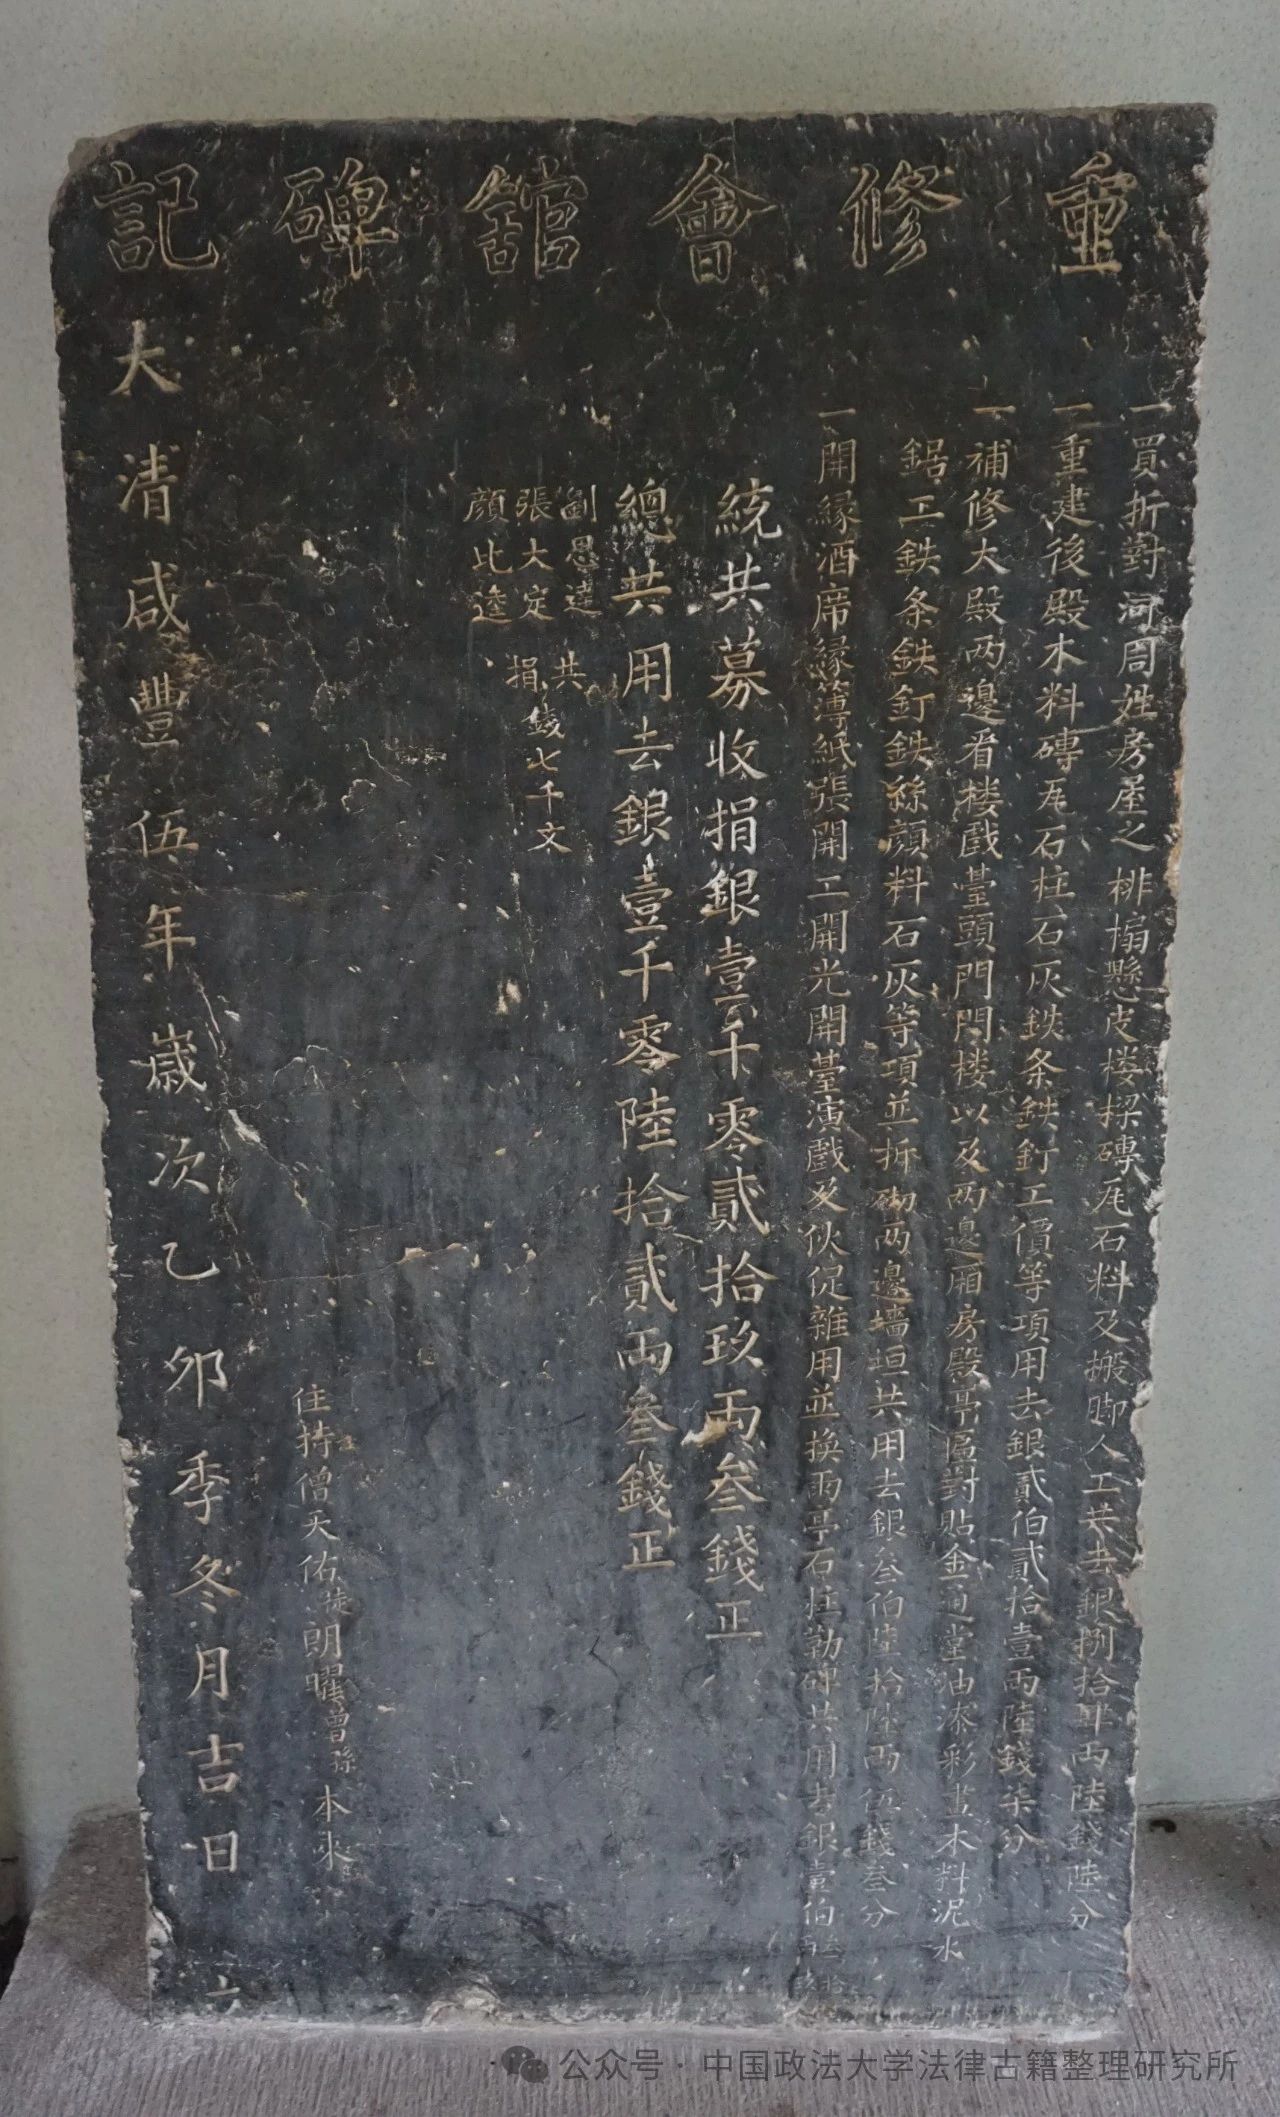 重修會館碑記
一買折對河周姓房屋之桃榻懸皮楼楔磚瓦石料及搬脚人工共去銀捌拾肆両陸錢陸分
一重建後殿木料磚瓦石柱石灰鉄条鉄釘工價等項用去銀貳伯貳拾壹両陸錢柒分
一補修大殿两邊看楼戲臺頭門門楼以及两邊廂房殿亭匾對貼金通堂油漆彩畫木料泥水
鋸工鉄条鉄釘鉄絲顔料石灰等項並拆砌两邊墻垣共用去銀叁伯陸拾陸両伍錢叁分
一開縁酒席縁簿紙張開工開光開臺演戲及伙食雜用並換雨亭石柱勒碑共用去銀壹伯
統共募收捐銀壹千零貳拾玖両叁錢正
總共用去銀壹千零陸拾貳両叁錢正
劉思達
張大定
顔比逵
共捐錢七千文
住持僧天佑徒朗曜曾孫本來
大清咸豐伍年歲次乙卯季冬月吉日
公众号·中国政法大学法律古籍整理研究所